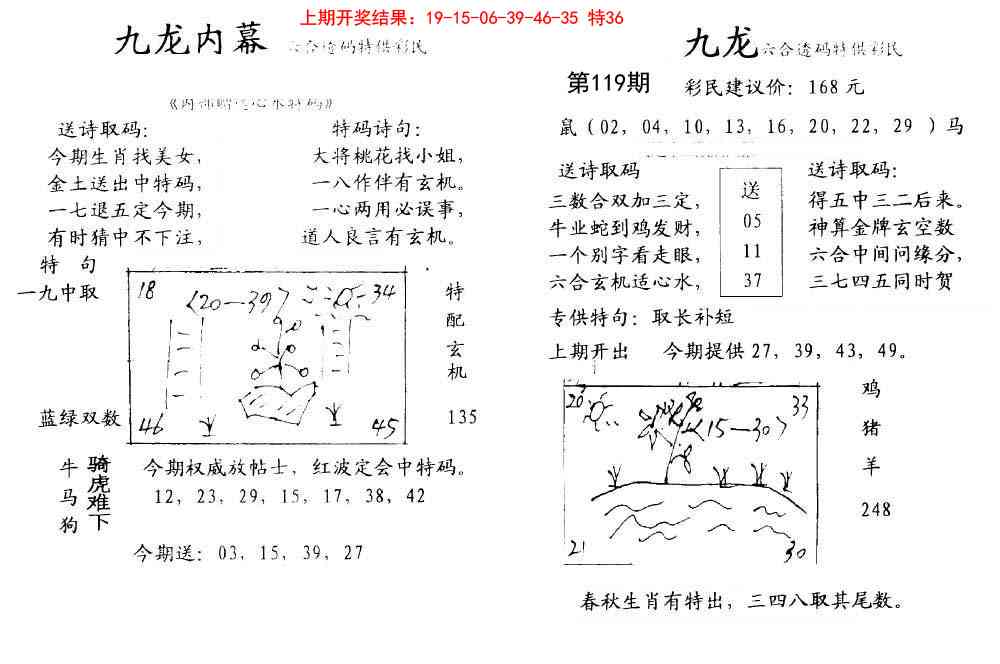 上期开奖结果：19-15-06-39-46-35 特36
九龙内幕 六合透码特供彩民
送诗取码：
今期生肖找美女，
金土送出中特码，
一七退五定今期，
有时猜中不下注，
特码诗句：
大将桃花找小姐，
一八作伴有玄机。
一心两用必误事，
道人良言有玄机。
特 句
一九中取
蓝绿双数
18
〈20—39〉
34
46
45
特
配
玄
机
135
牛
马
狗
骑
虎
难
下
今期权威放帖士，红波定会中特码。
12，23，29，15，17，38，42
今期送：03，15，39，27
九龙 六合透码特供彩民
第119期 彩民建议价：168元
鼠（02，04，10，13，16，20，22，29 ）马
送诗取码
三数合双加三定，
牛业蛇到鸡发财，
一个别字看走眼，
六合玄机适心水，
送
05
11
37
送诗取码：
得五中三二后来。
神算金牌玄空数
六合中间问缘分，
三七四五同时贺
专供特句：取长补短
上期开出 今期提供27，39，43，49。
20
33
〈15—30〉
21
30
鸡
猪
羊
248
春秋生肖有特出，三四八取其尾数。